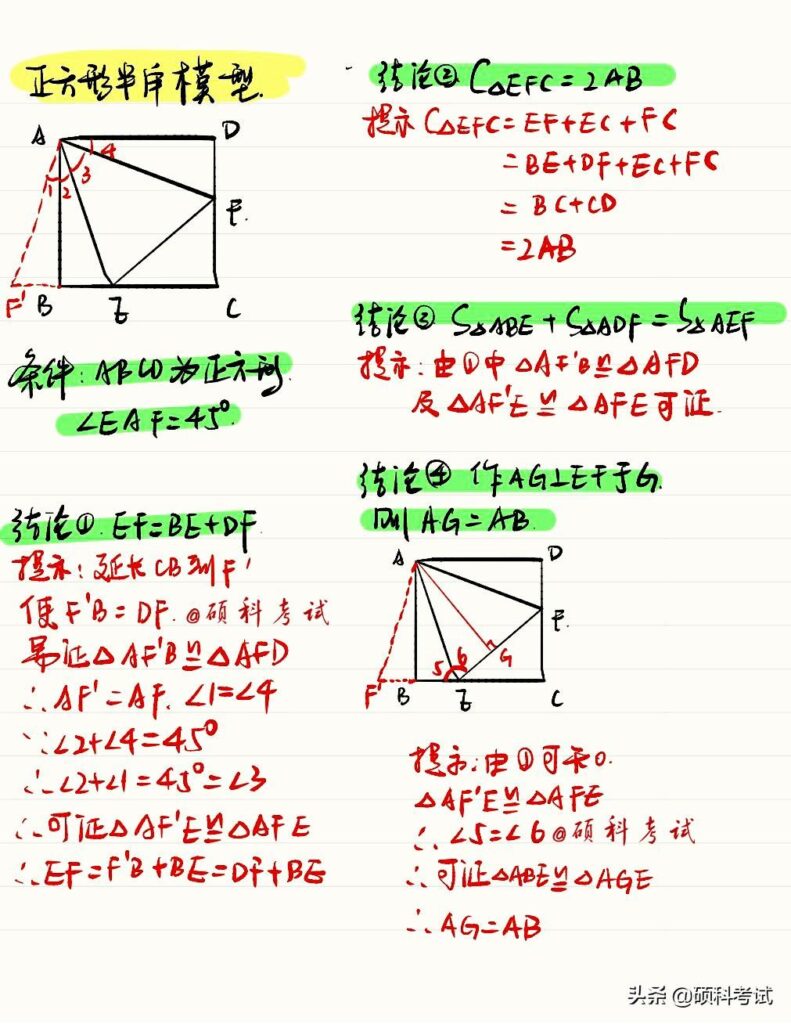 正方形半角模型.
A
D
1
2
3
4
F.
F'
B
E
C
条件: ABCD为正方形.
∠EAF=45°.
结论①. EF=BE+DF.
提示: 延长CB到F'
使F'B=DF. @硕科考试
易证△AF'B≌△AFD
∴AF'=AF. ∠1=∠4
∵∠2+∠4=45°
∴∠2+∠1=45°=∠3
∴可证△AF'E≌△AFE
∴EF=F'B+BE=DF+BE
结论② C△EFC=2AB
提示 C△EFC=EF+EC+FC
=BE+DF+EC+FC
=BC+CD
=2AB
结论③ S△ABE+S△ADF=S△AEF
提示: 由①中△AF'B≌△AFD
及△AF'E≌△AFE可证.
结论④ 作AG⊥EF于G.
则AG=AB.
A
D
F.
5
6
G
F'
B
E
C
提示: 由①可知.
△AF'E≌△AFE
∴∠5=∠6 @硕科考试
∴可证△ABE≌△AGE
∴AG=AB
头条 @硕科考试